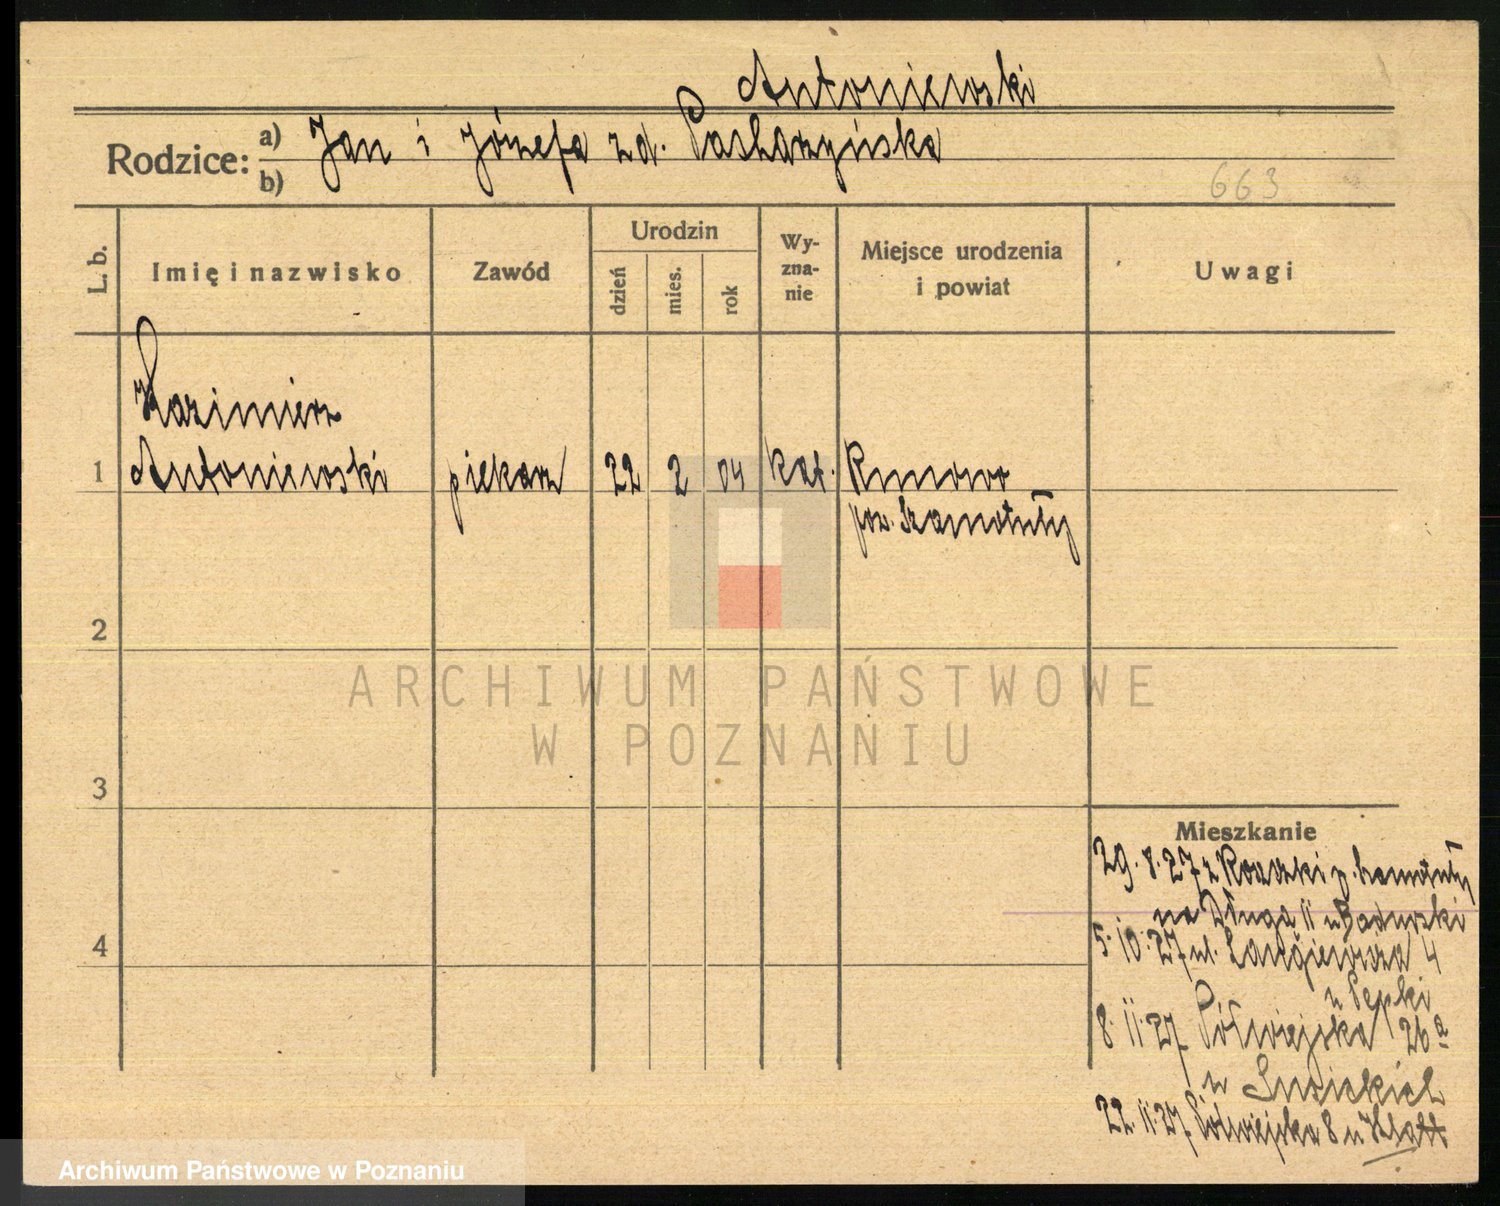 Antoniewski
Rodzice: a) b) Jan i Józefa zd.
663
L. b.
Imię i nazwisko
Zawód
Urodzin
dzień
mies.
rok
Wy-
zna-
nie
Miejsce urodzenia
i powiat
Uwagi
Kazimierz
1 Antoniewski piekarz 22 2 04 kat.
pow. Szamotuły
2
3
4
ARCHIWUM PAŃSTWOWE
W POZNANIU
Mieszkanie
29.8.27 z p. Szamotuły
na Długa 11 u
5.10.27 ul. Langiewicza 4
u
8.11.27 Półwiejska 26a
u
22.11.27. Półwiejska 8 u Klatt
Archiwum Państwowe w Poznaniu